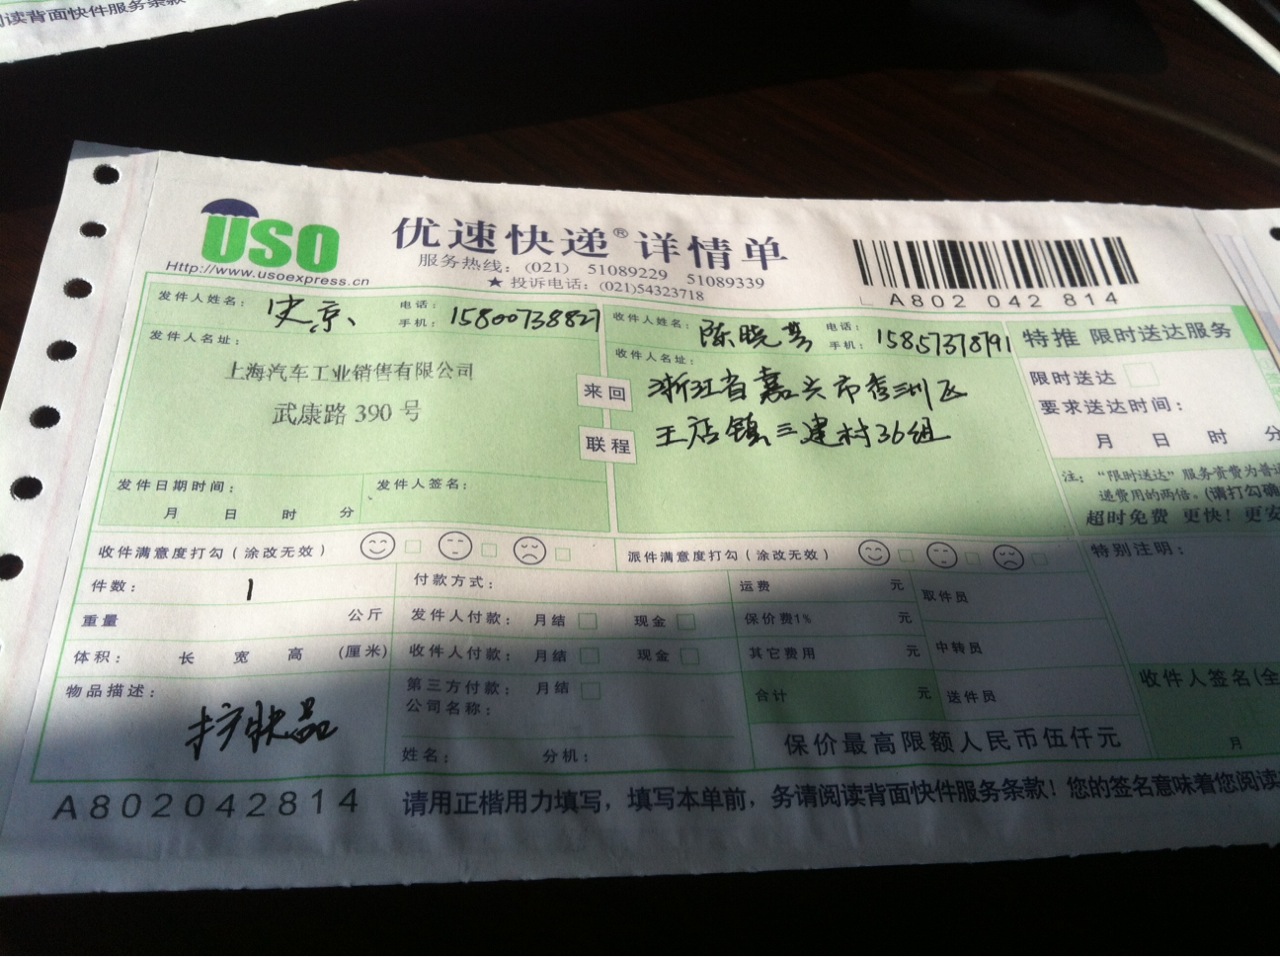 阅读背面快件服务条款
USO
Http://www.usoexpress.cn
优速快递®详情单
服务热线：(021) 51089229 51089339
★ 投诉电话：(021)54323718
A802 042 814
发件人姓名：史京、 电话： 手机：15800738827
发件人名址：
上海汽车工业销售有限公司
武康路 390 号
发件日期时间： 月 日 时 分
发件人签名：
来回
联程
收件人姓名：陈晓芳 电话： 手机：15857378791
收件人名址：
浙江省嘉兴市秀洲区
王店镇三建村36组
特推 限时送达服务
限时送达
要求送达时间：
月 日 时 分
注：“限时送达”服务资费为普通
递费用的两倍。(请打勾确
超时免费 更快！更安
收件满意度打勾（涂改无效）
派件满意度打勾（涂改无效）
特别注明：
件数：1
重量 公斤
体积： 长 宽 高 (厘米)
物品描述：
护肤品
付款方式：
发件人付款： 月结 现金
收件人付款： 月结 现金
第三方付款： 月结
公司名称：
姓名： 分机：
运费 元
保价费1% 元
其它费用 元
合计 元
取件员
中转员
送件员
保价最高限额人民币伍仟元
收件人签名(全
月
A802042814
请用正楷用力填写，填写本单前，务请阅读背面快件服务条款！您的签名意味着您阅读